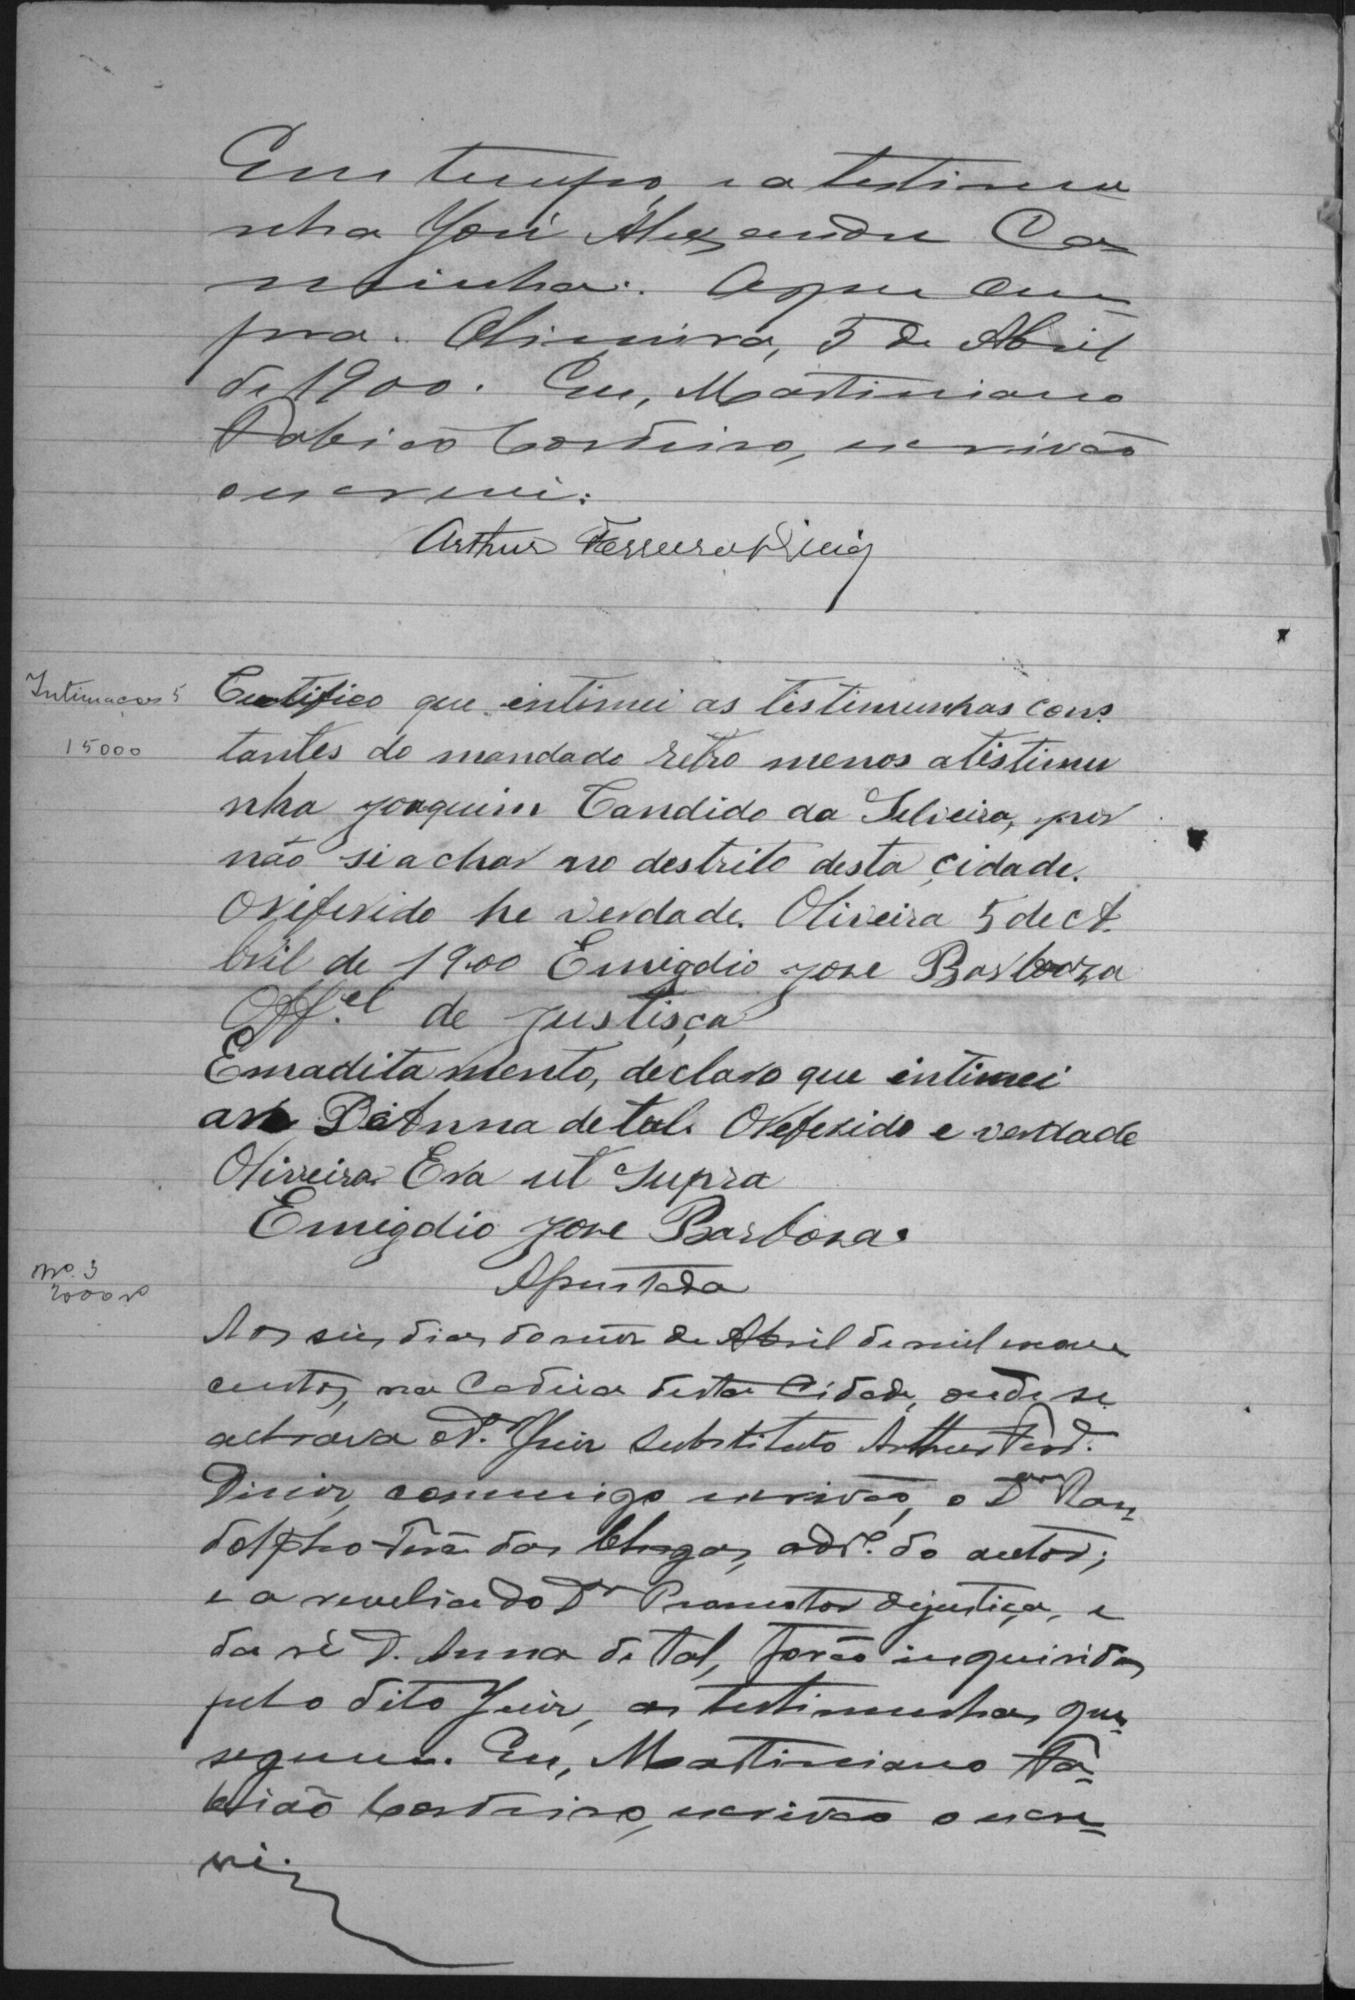 Em tempo, e a testimu
nha José Alexandre Ca-
minha. O que cum-
pra. Oliveira, 5 de Abril
de 1900. Eu, Martiniano
Fabião Cordeiro, escrivão
o escrevi.
Arthur Ferreira Diniz
Intimaçoes 5
15000
Certifico que intimei as testimunhas cons
tantes do mandado retro menos atestimu
nha Joaquim Candido da Silveira, por
não siachar no destrito desta cidade.
Oriferido he verdade. Oliveira 5 de A.
bril de 1900 Emigdio Jose Barboza
Off.el de justisça
Emaditamento, declaro que intimei
are D Anna de tal. Oreferido e verdade
Oliveira Era ut supra
Emigdio Jose Barboza.
Nº 3
2000
Apuntada
Aos seis dias do mez de Abril de mil nove
centos, na Cadeia desta Cidade, onde se
achava o Dr. Juiz Substituto Arthur Ferr.
Diniz, commigo escrivão, o Dr Ran-
dolpho das Chagas, adv.º do autor;
e a revelia do Dr Promotor dejustiça, e
da ré D. Anna de tal, forão inquiridas
pelo dito Juiz, as testimunhas que
seguem. Eu, Martiniano Fa-
bião Cordeiro, escrivão o escre-
vi.